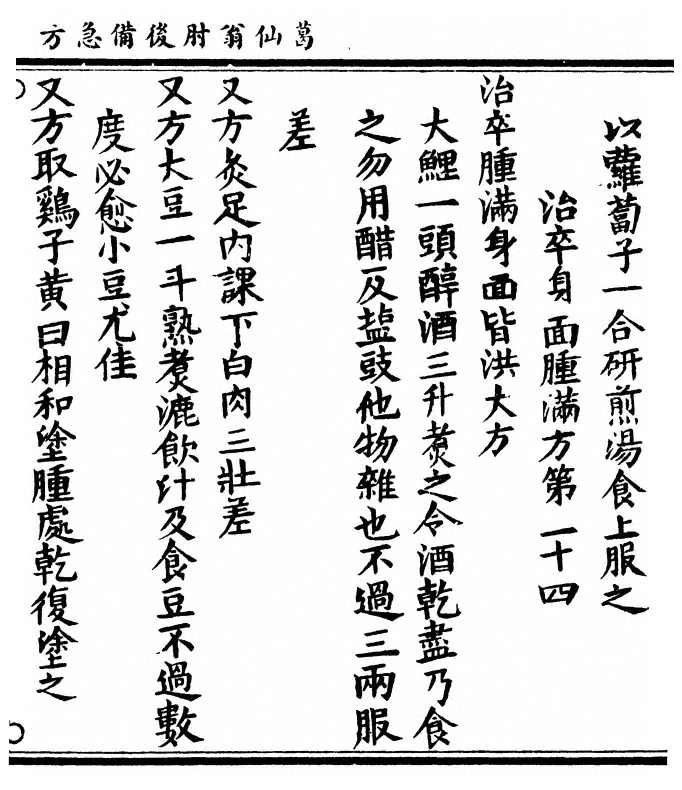 葛仙翁肘後備急方
以蘿蔔子一合研煎湯食上服之
治卒身面腫滿方第二十四
治卒腫滿身面皆洪大方
大鯉一頭醇酒三升煑之令酒乾盡乃食
之勿用醋及盐豉他物雜也不過三兩服
差
又方灸足内踝下白肉三壯差
又方大豆一斗熟煑漉飲汁及食豆不過數
度必愈小豆尤佳
又方取鷄子黄白相和塗腫處乾復塗之